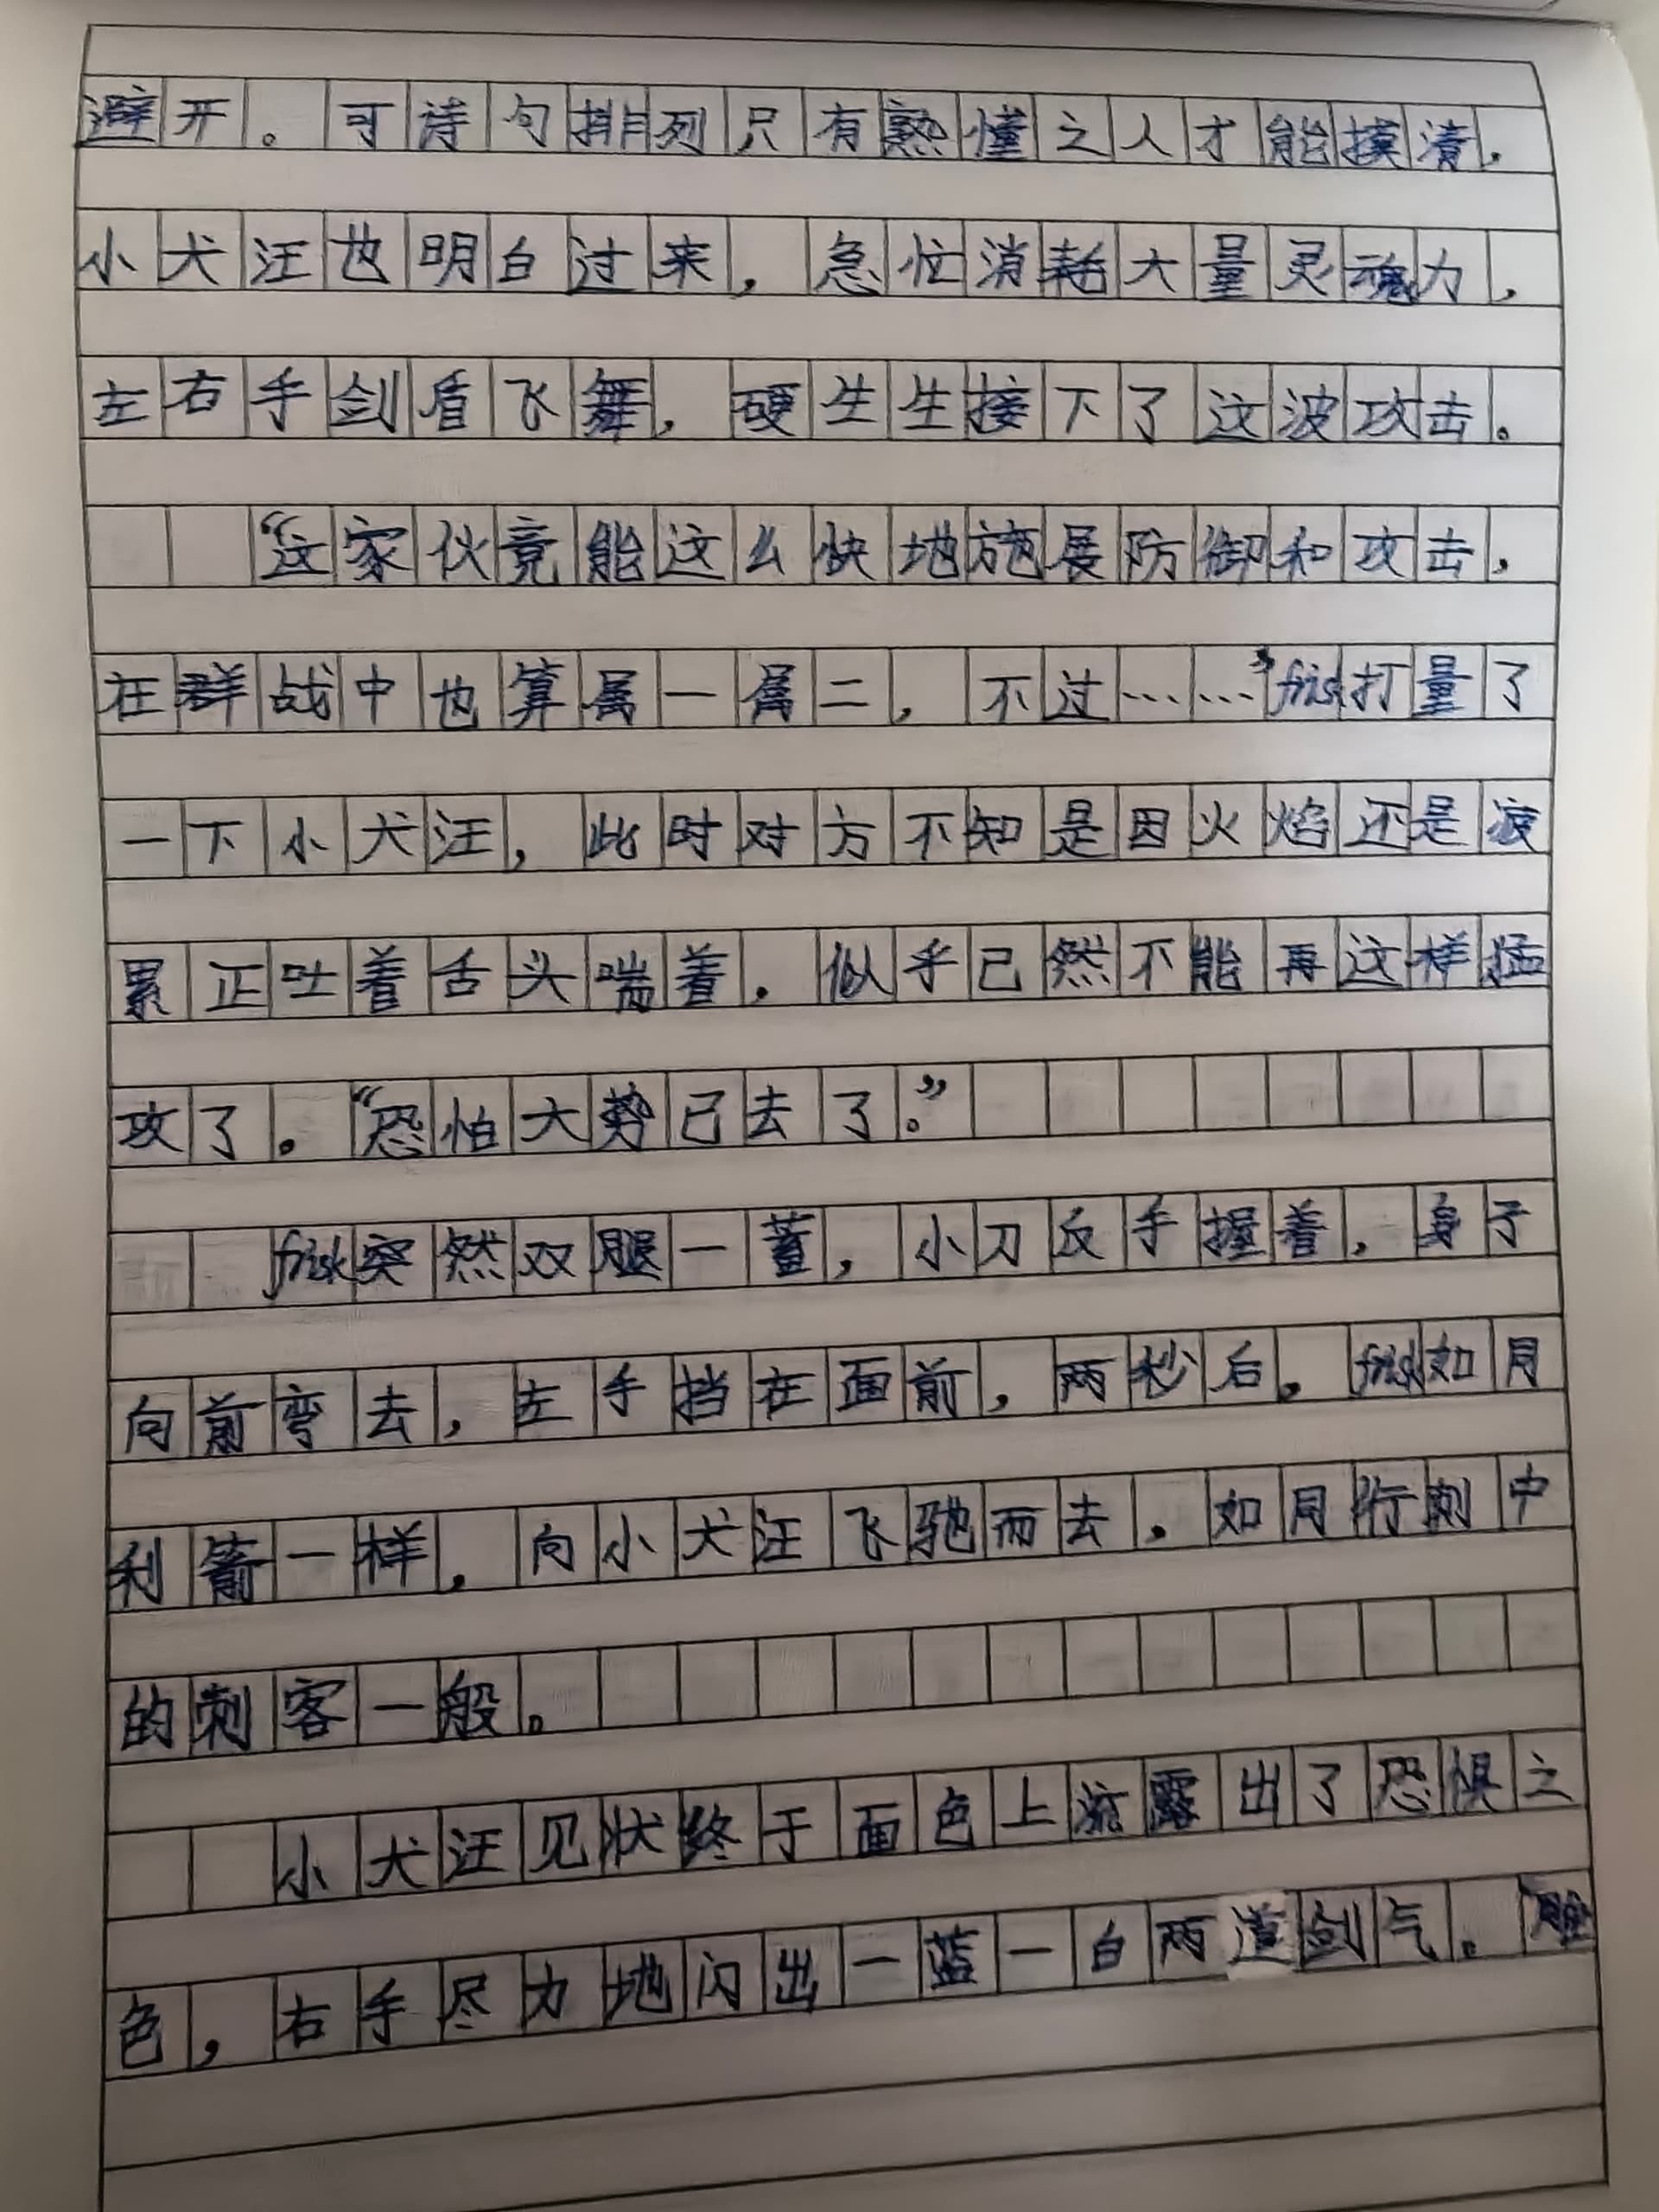 避开。可诗句排列只有熟懂之人才能摸清,
小犬汪也明白过来,急忙消耗大量灵魂力,
左右手剑盾飞舞,硬生生接下了这波攻击。
“这家伙竟能这么快地施展防御和攻击,
在群战中也算属一属二,不过……”frisk打量了
一下小犬汪,此时对方不知是因火焰还是疲
累正吐着舌头喘着。似乎已然不能再这样猛
攻了。“恐怕大势已去了。”
frisk突然双腿一蓄,小刀反手握着,身子
向前弯去,左手挡在面前,两秒后。frisk如同
利箭一样,向小犬汪飞驰而去。如同行刺中
的刺客一般。
小犬汪见状终于面色上流露出了恐惧之
色,右手尽力地闪出一蓝一白两道剑气。